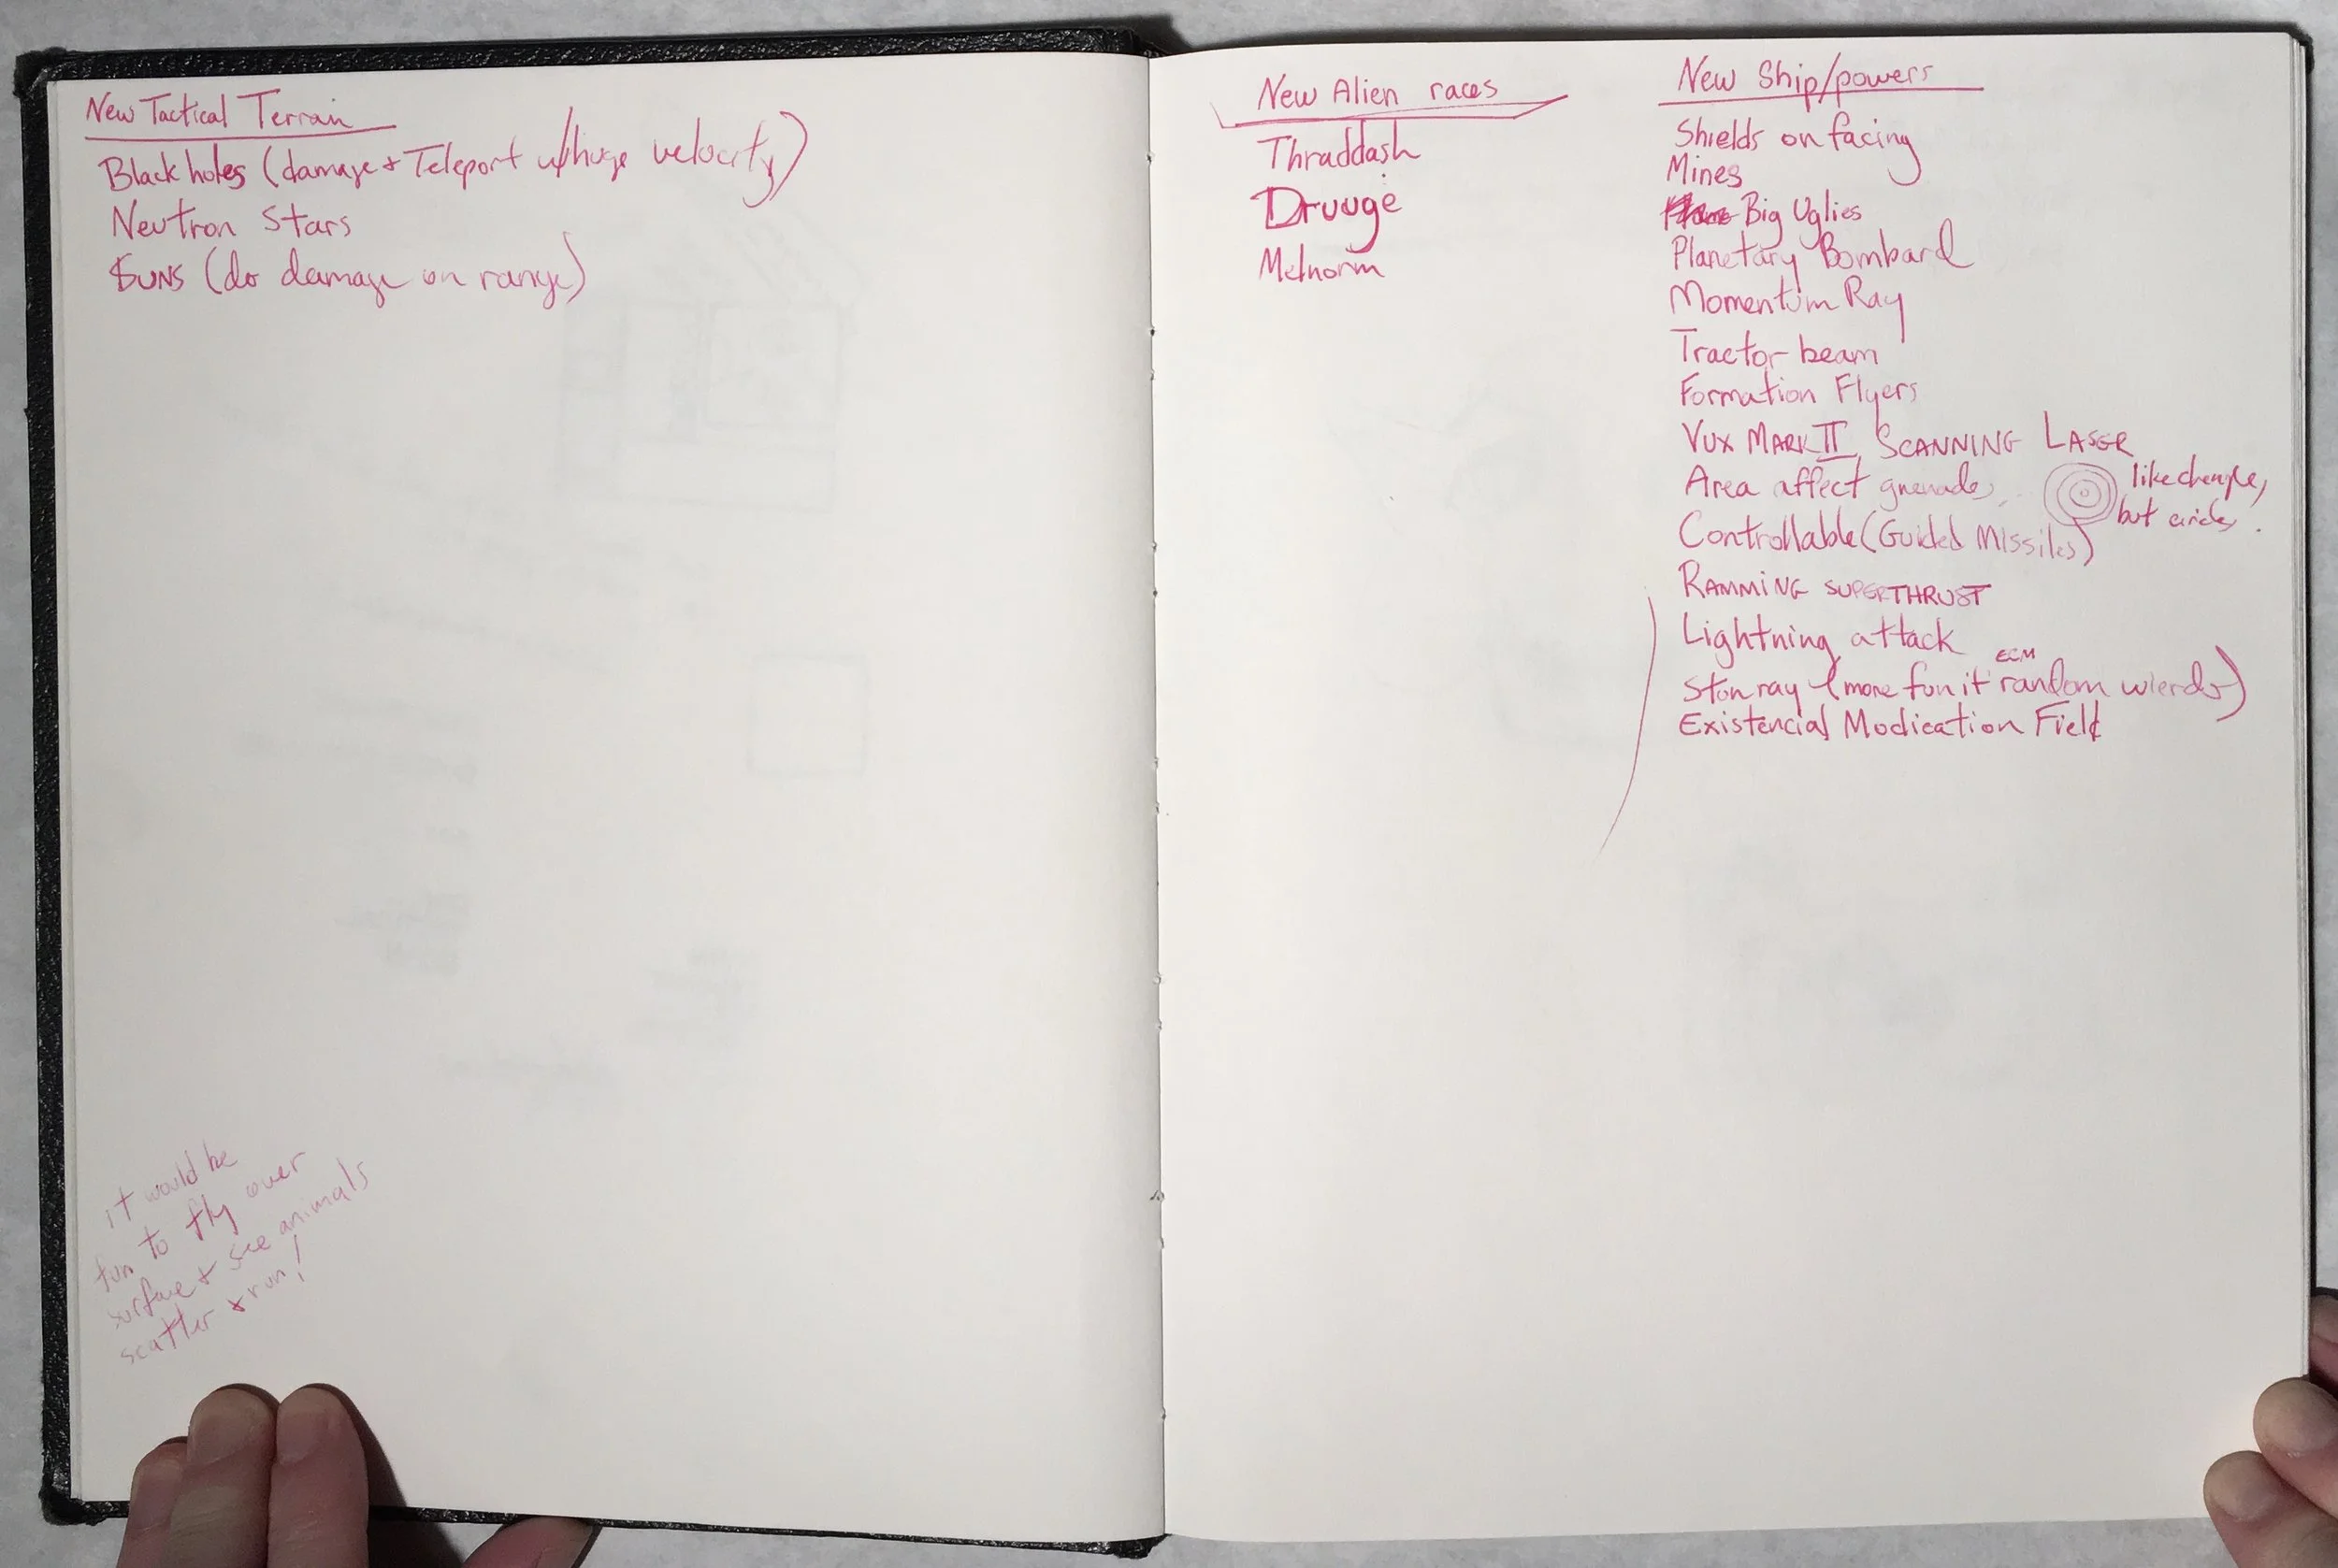 New Tactical Terrain
Black holes (damage + Teleport w/huge velocity)
Neutron Stars
Suns (do damage on range)
it would be
fun to fly over
surface + see animals
scatter + run!
New Alien races
Thraddash
Druuge
Melnorm
New Ship/powers
Shields on facing
Mines
Big Uglies
Planetary Bombard
Momentum Ray
Tractor beam
Formation Flyers
VUX MARK II SCANNING LASER
Area affect grenades
like chenjle,
but circles.
Controllable (Guided Missiles)
RAMMING SUPERTHRUST
Lightning attack
ECM
Ston ray (more fun if random wierdo)
Existencial Modication Field